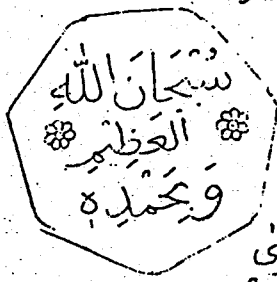 سُبْحَانَ اللّٰهِ
الْعَظِيْمِ
وَبِحَمْدِهٖ